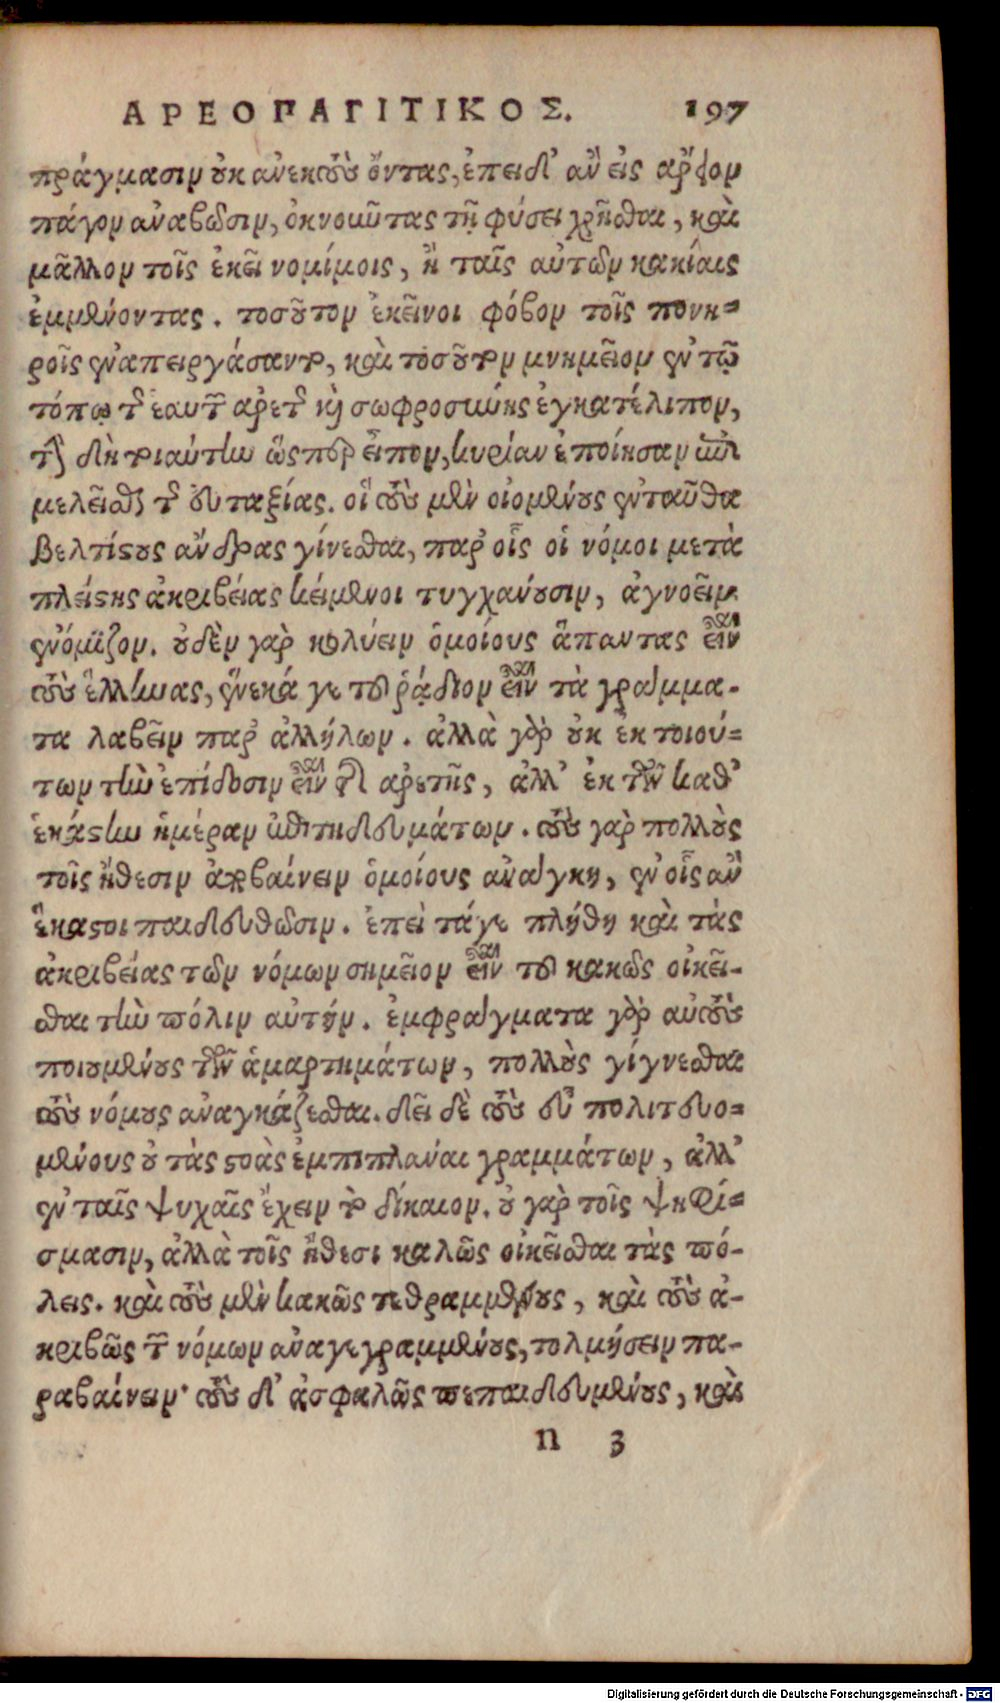 ΑΡΕΟΠΑΓΙΤΙΚΟΣ. 197
πράγμασιν οὐκ ἀνεκτοὺς ὄντας, ἐπειδ᾽ ἂν εἰς ἄρειον
πάγον ἀναβῶσιν, ὀκνοῦντας τῇ φύσει χρῆσθαι, καὶ
μᾶλλον τοῖς ἐκεῖ νομίμοις, ἢ ταῖς αὐτῶν κακίαις
ἐμμένοντας. τοσοῦτον ἐκεῖνοι φόβον τοῖς πονη-
ροῖς ἐναπειργάσαντο, καὶ τοσοῦτον μνημεῖον ἐν τῷ
τόπῳ τῆς ἑαυτῶν ἀρετῆς καὶ σωφροσύνης ἐγκατέλιπον,
τὴν δὴ τοιαύτην ὥσπερ εἶπον, κυρίαν ἐποίησαν ἐπι
μελεῖσθαι τῆς εὐταξίας. οἳ τοὺς μὲν οἰομένους ἐνταῦθα
βελτίστους ἄνδρας γίνεσθαι, παρ᾽ οἷς οἱ νόμοι μετὰ
πλείστης ἀκριβείας κείμενοι τυγχάνουσιν, ἀγνοεῖν
ἐνόμιζον. οὐδὲν γὰρ κωλύειν ὁμοίους ἅπαντας εἶναι
τοὺς ἕλληνας, ἕνεκά γε τοῦ ῥᾴδιον εἶναι τὰ γράμμα-
τα λαβεῖν παρ᾽ ἀλλήλων. ἀλλὰ γὰρ οὐκ ἐκ τοιού-
των τὴν ἐπίδοσιν εἶναι τῆς ἀρετῆς, ἀλλ᾽ ἐκ τῶν καθ᾽
ἑκάστην ἡμέραν ἐπιτηδευμάτων. τοὺς γὰρ πολλοὺς
τοῖς ἤθεσιν ἀποβαίνειν ὁμοίους ἀνάγκη, ἐν οἷς ἂν
ἕκαστοι παιδευθῶσιν. ἐπεὶ τά γε πλήθη καὶ τὰς
ἀκριβείας τῶν νόμων σημεῖον εἶναι τοῦ κακῶς οἰκεῖ-
σθαι τὴν πόλιν αὐτήν. ἐμφράγματα γὰρ αὐτοὺς
ποιουμένους τῶν ἁμαρτημάτων, πολλοὺς γίγνεσθαι
τοὺς νόμους ἀναγκάζεσθαι. δεῖ δὲ τοὺς εὖ πολιτευο-
μένους οὐ τὰς στοὰς ἐμπιπλάναι γραμμάτων, ἀλλ᾽
ἐν ταῖς ψυχαῖς ἔχειν τὸ δίκαιον. οὐ γὰρ τοῖς ψηφί-
σμασιν, ἀλλὰ τοῖς ἤθεσι καλῶς οἰκεῖσθαι τὰς πό-
λεις. καὶ τοὺς μὲν κακῶς τεθραμμένους, καὶ τοὺς ἀ-
κριβῶς τῶν νόμων ἀναγεγραμμένους, τολμήσειν πα-
ραβαίνειν· τοὺς δ᾽ ἀσφαλῶς πεπαιδευμένους, καὶ
n 3
Digitalisierung gefördert durch die Deutsche Forschungsgemeinschaft - DFG